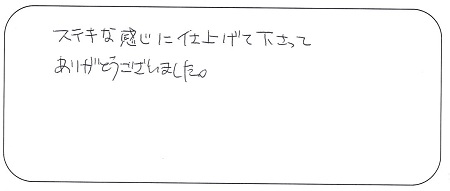 ステキな感じに仕上げて下さって
ありがとうございました。